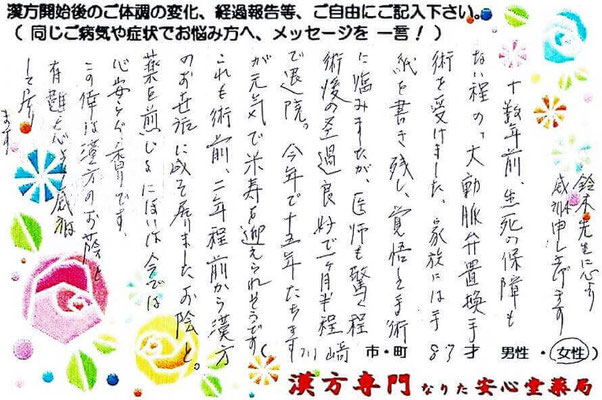 漢方開始後のご体調の変化、経過報告等、ご自由にご記入下さい。
( 同じご病気や症状でお悩み方へ、メッセージを 一言！ )
鈴木先生に心より
感謝申し上げます
十数年前、生死の保障も
ない程の、大動脈弁置換手
術を受けました。家族には手
紙を書き残し、覚悟して手術
に臨みましたが、医師も驚く程
術後の経過良好で一ヶ月半程
で退院。今年で十五年たちます
が元気で米寿を迎えられそうです
これも術前、二年程前から漢方
のお世話に成って居りましたお陰と。
薬を煎じるにほいは今では
心安らぐ香りです
この倖は漢方のお蔭と
有難く心より感謝
して居り
ます
( 川崎 市・町 87才 男性・女性)
漢方専門 なりた 安心堂薬局